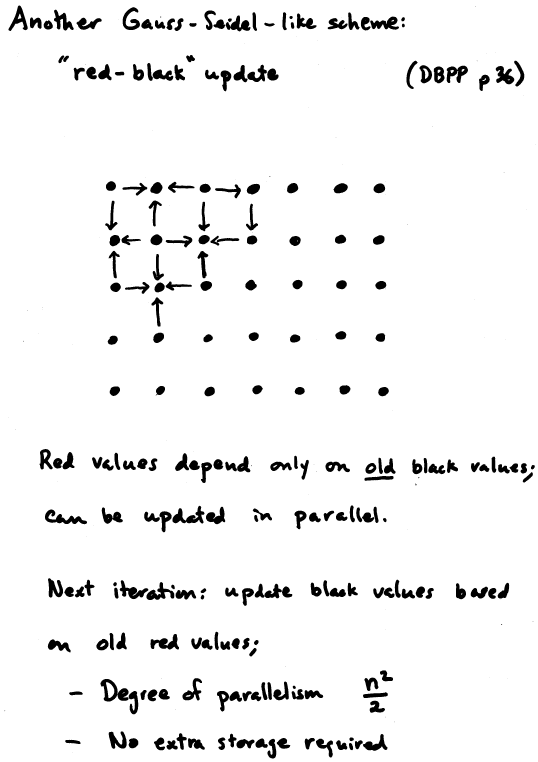 Another Gauss-Seidel-like scheme:
"red-black" update (DBPP p 36)
Red values depend only on old black values;
can be updated in parallel.
Next iteration: update black values based
on old red values;
- Degree of parallelism n²/2
- No extra storage required